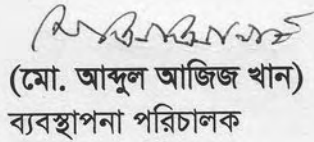 (মো. আব্দুল আজিজ খান)
ব্যবস্থাপনা পরিচালক